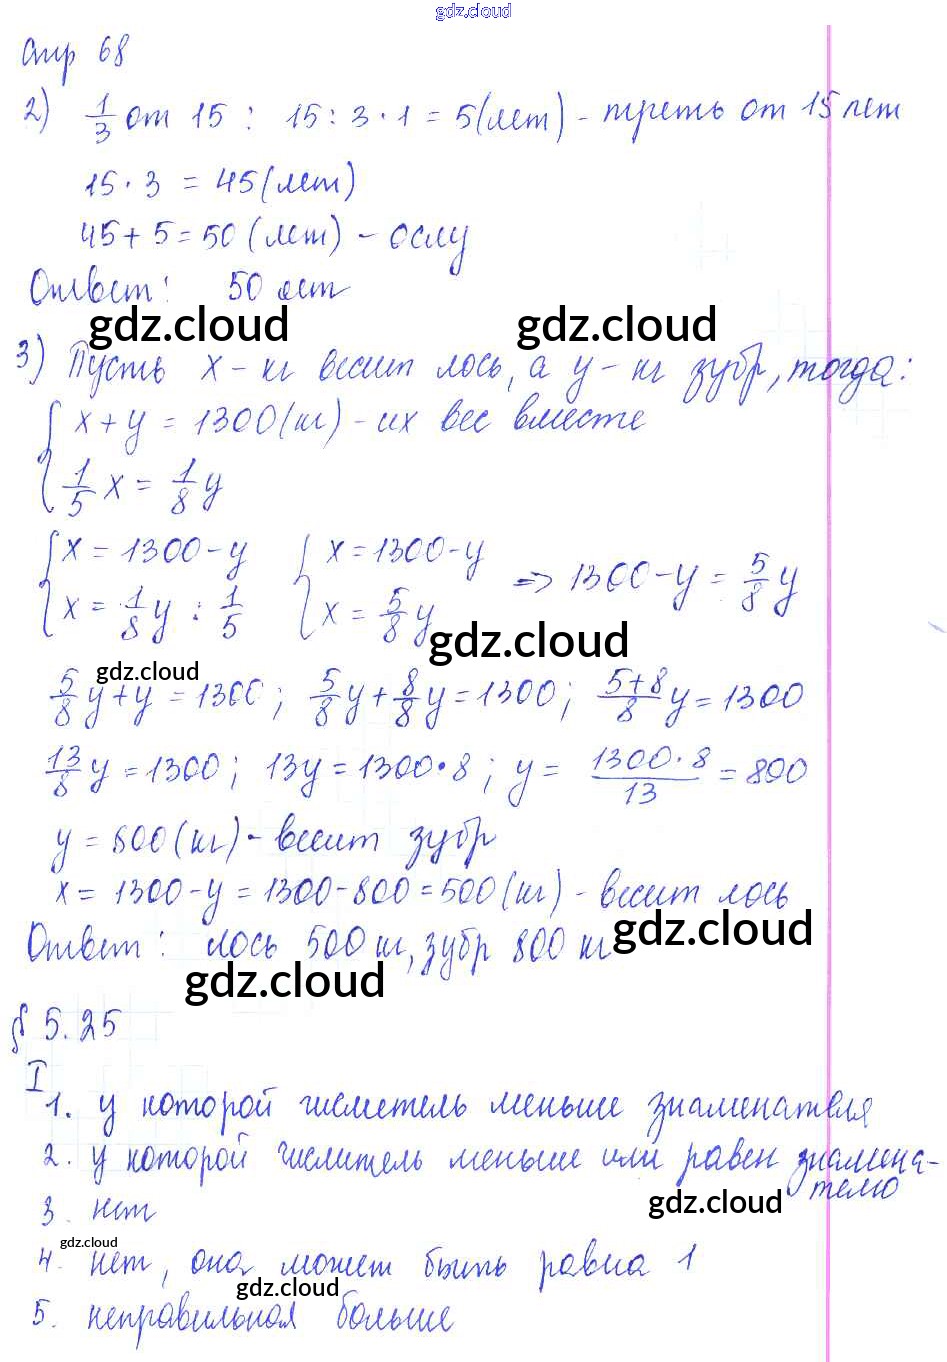 gdz.cloud
стр 68
2) 1/3 от 15 : 15 : 3 · 1 = 5 (лет) - треть от 15 лет
15 · 3 = 45 (лет)
45 + 5 = 50 (лет) - ослу
Ответ: 50 лет
gdz.cloud gdz.cloud
3) Пусть x - кг весит лось, а y - кг зубр, тогда:
{ x + y = 1300 (кг) - их вес вместе
{ 1/5 x = 1/8 y
{ x = 1300 - y { x = 1300 - y
{ x = 1/8 y : 1/5 { x = 5/8 y => 1300 - y = 5/8 y
gdz.cloud
gdz.cloud
5/8 y + y = 1300 ; 5/8 y + 8/8 y = 1300 ; 5+8/8 y = 1300
13/8 y = 1300 ; 13y = 1300 · 8 ; y = 1300 · 8/13 = 800
y = 800 (кг) - весит зубр
x = 1300 - y = 1300 - 800 = 500 (кг) - весит лось
Ответ: лось 500 кг, зубр 800 кг
gdz.cloud
gdz.cloud
§ 5.25
I
1. у которой числитель меньше знаменателя
2. у которой числитель меньше или равен знамена-
телю
gdz.cloud
3. нет
gdz.cloud
4. нет, она может быть равна 1
gdz.cloud
5. неправильная больше